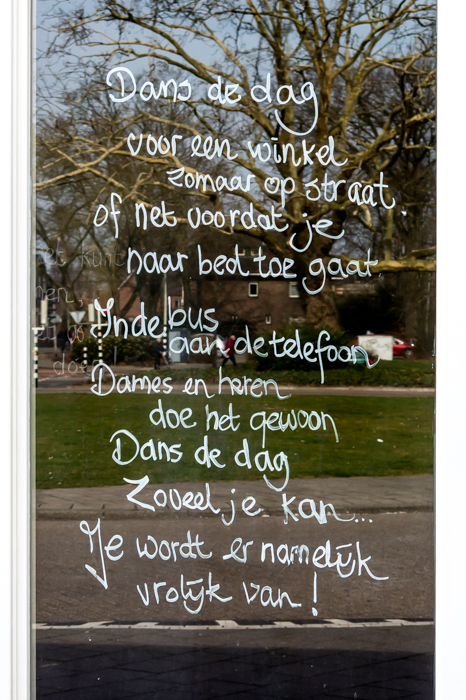 Dans de dag
voor een winkel
zomaar op straat.
of net voordat je
naar bed toe gaat.
In de bus
aan de telefoon
Dames en heren
doe het gewoon
Dans de dag
Zoveel je kan...
Je wordt er namelijk
vrolijk van!